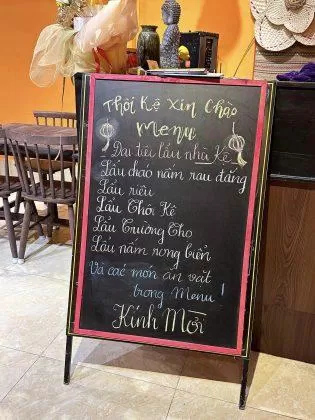 Thôi Kệ Xin Chào
Menu
Đại tiệc lẩu nhà Kệ
Lẩu cháo nấm rau đắng
Lẩu riêu
Lẩu Thôi Kệ
Lẩu Trường Thọ
Lẩu nấm rong biển
Và các món ăn vặt
trong Menu !
Kính Mời